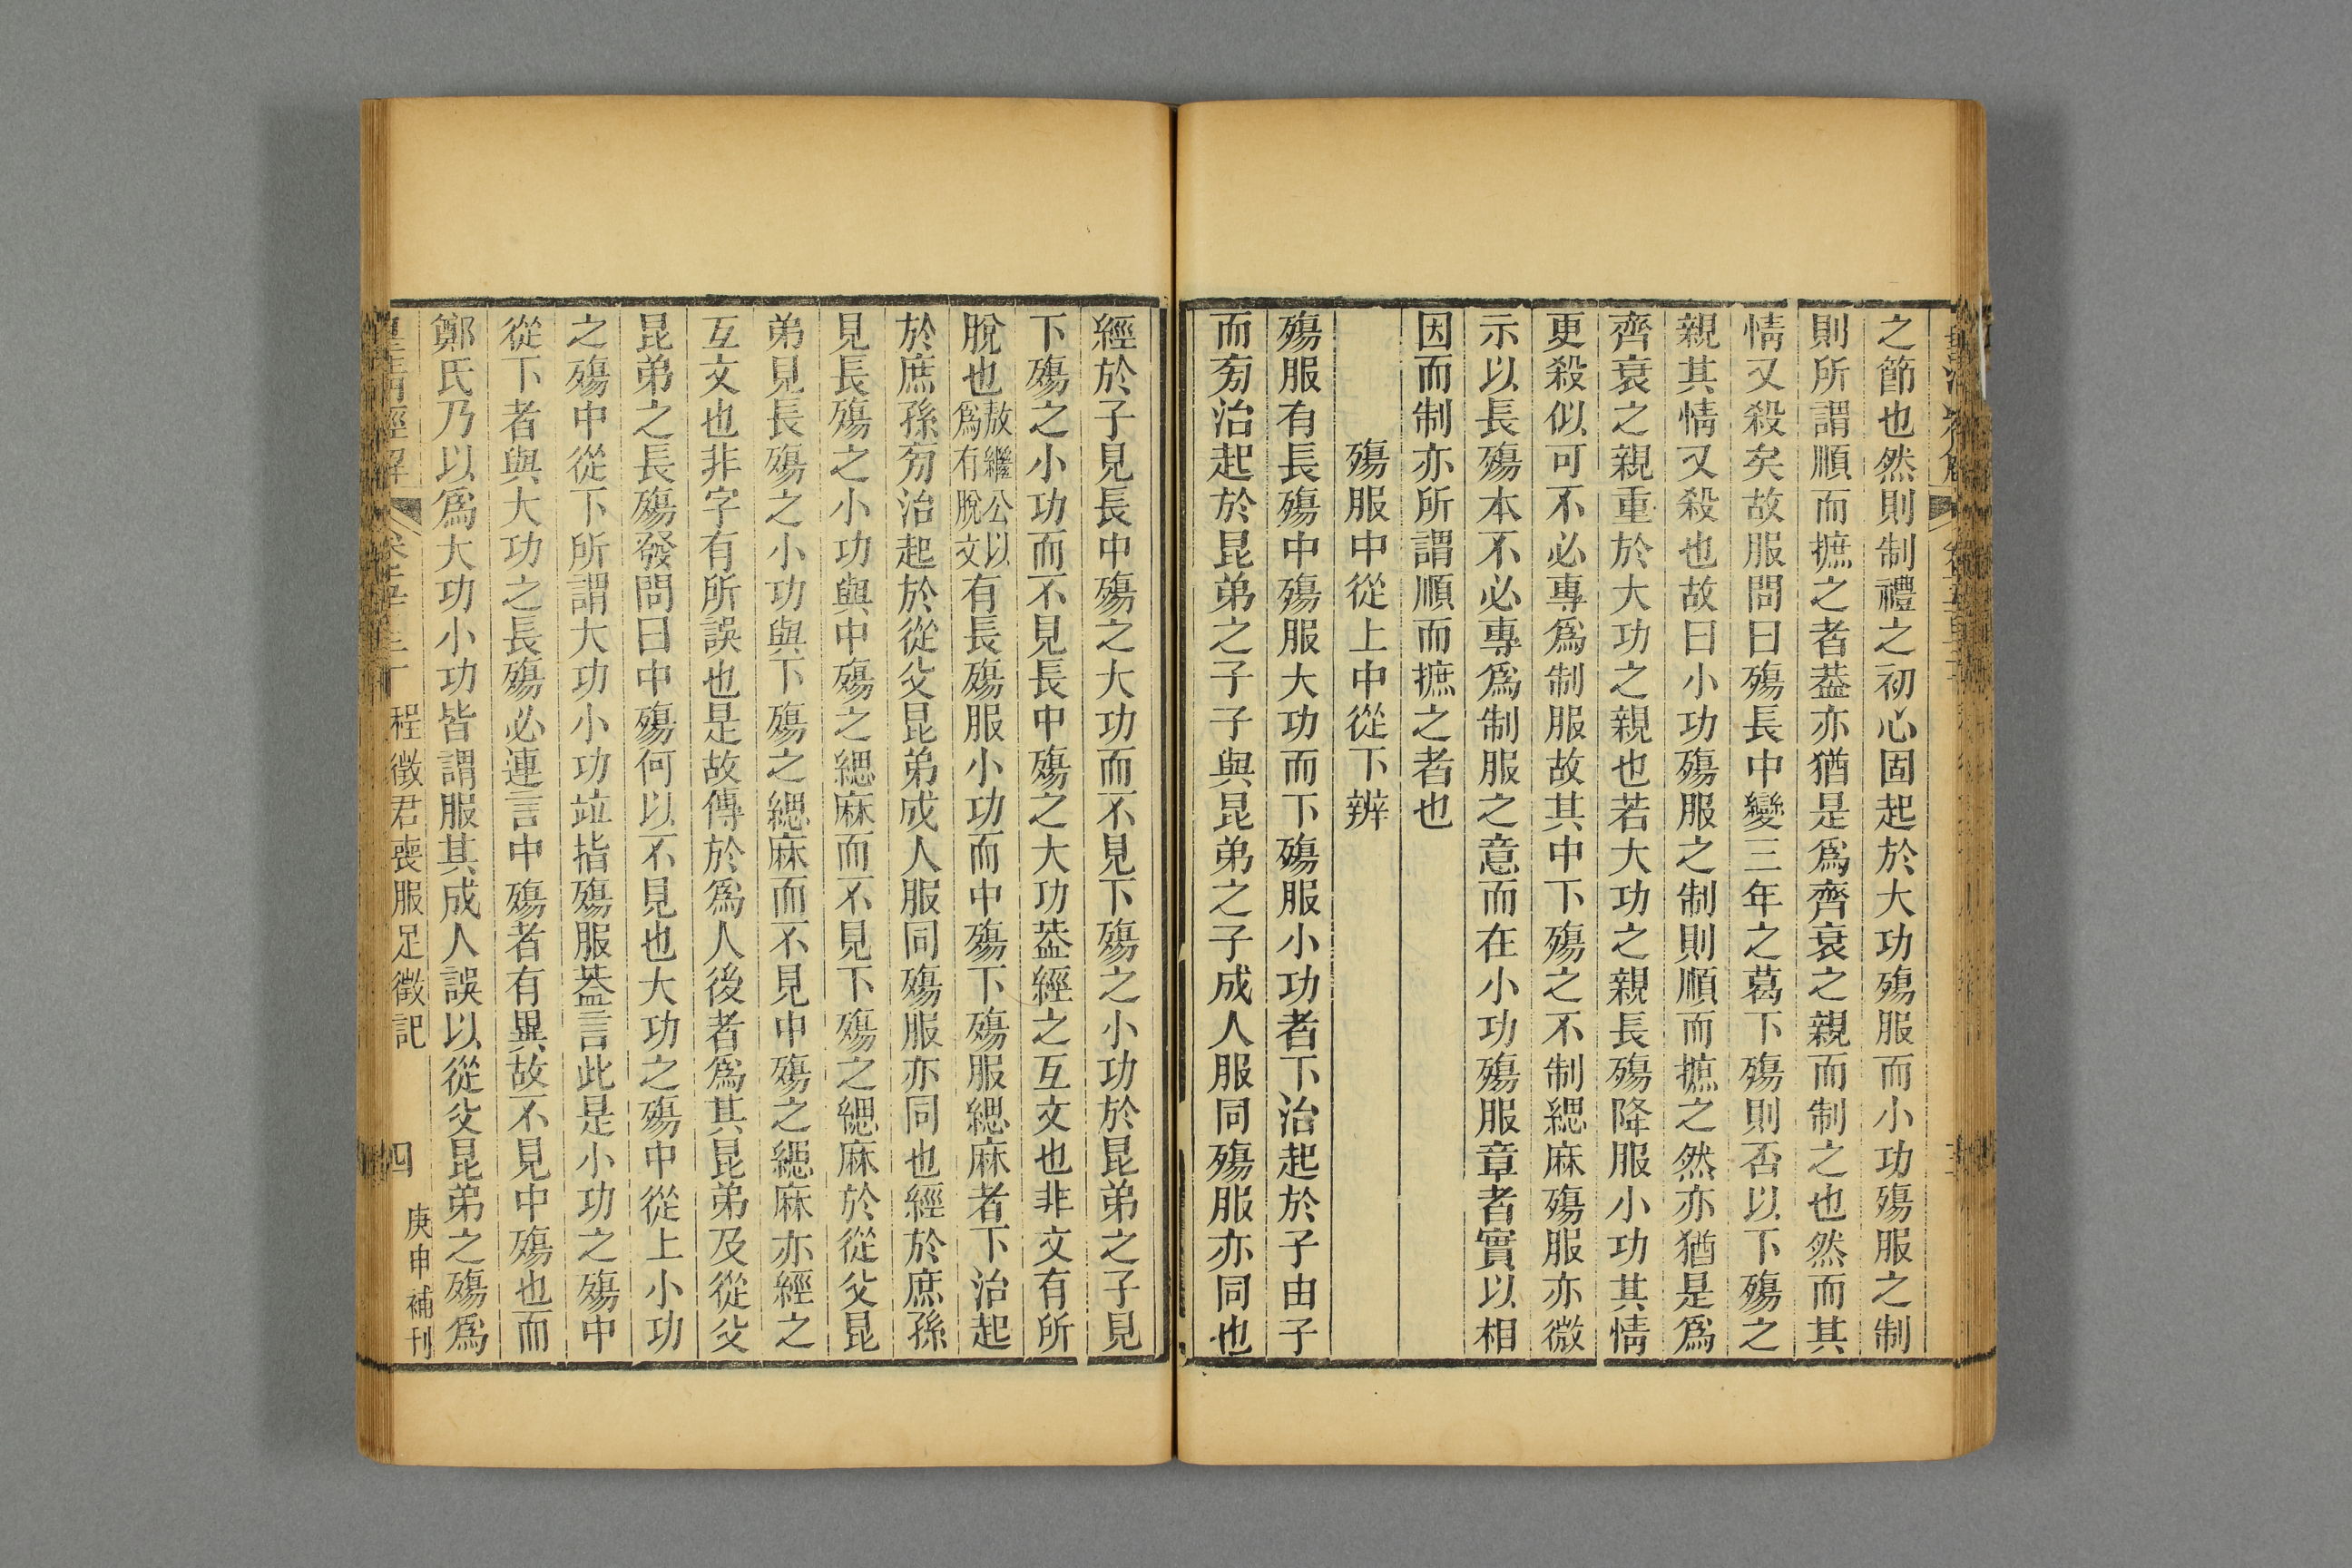 之節也然則制禮之初心固起於大功殤服而小功殤服之制
則所謂順而摭之者葢亦猶是爲齊衰之親而制之也然而其
情又殺矣故服問曰殤長中變三年之葛下殤則否以下殤之
親其情又殺也故曰小功殤服之制則順而摭之然亦猶是爲
齊衰之親重於大功之親也若大功之親長殤降服小功其情
更殺似可不必專爲制服故其中下殤之不制緦麻殤服亦微
示以長殤本不必專爲制服之意而在小功殤服章者實以相
因而制亦所謂順而摭之者也
殤服中從上中從下辨
殤服有長殤中殤服大功而下殤服小功者下治起於子由子
而㫄治起於昆弟之子子與昆弟之子成人服同殤服亦同也
經於子見長中殤之大功而不見下殤之小功於昆弟之子見
下殤之小功而不見長中殤之大功葢經之互文也非文有所
脫也敖繼公以爲有脫文有長殤服小功而中殤下殤服緦麻者下治起
於庶孫㫄治起於從父昆弟成人服同殤服亦同也經於庶孫
見長殤之小功與中殤之緦麻而不見下殤之緦麻於從父昆
弟見長殤之小功與下殤之緦麻而不見中殤之緦麻亦經之
互文也非字有所誤也是故傳於爲人後者爲其昆弟及從父
昆弟之長殤發問曰中殤何以不見也大功之殤中從上小功
之殤中從下所謂大功小功竝指殤服葢言此是小功之殤中
從下者與大功之長殤必連言中殤者有異故不見中殤也而
鄭氏乃以爲大功小功皆謂服其成人誤以從父昆弟之殤爲
皇清經解
程徵君喪服足徵記
四
庚申補刊